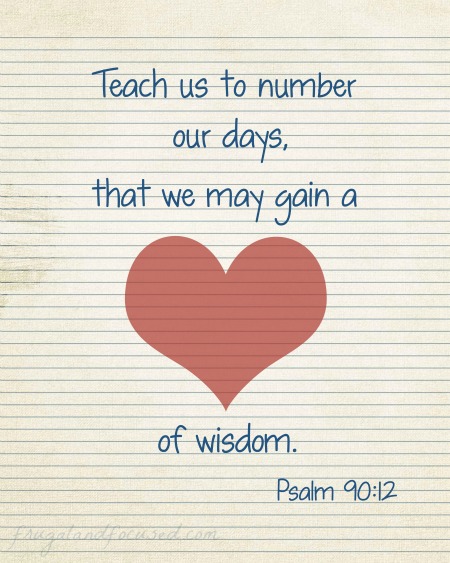 Teach us to number
our days,
that we may gain a
of wisdom.
Psalm 90:12
frugalandfocused.com